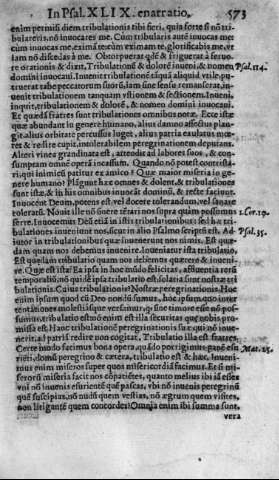 In Psal. XLIX. enarratio. 573
enim permisi diem tribulationis tibi fieri, quia forte si nō tri-
bulareris, nō inuocares me. Cum tribularis autē inuocas me:
cum inuocas me, eximā te: cum eximam te, glorificabis me, vt
iam nō discedas à me. Obtorpuerat quidā & friguerat à feruo-
re orationis & dixit, Tribulationē & dolorē inueni, & nomen Psal. 114.
domini inuocaui. Inuenit tribulationē tāquā aliquid vtile,
truerat tabe peccatorum suorū, iam sine sensu remanserat, in-
uenit tribulationem tanquam vstionem & sectionem. Inueni,
inquit, tribulationem & dolorē, & nomen domini inuocaui.
Et quædā fratres sunt tribulationes omnibus notæ. Ecce istæ
quæ abundant in genere humano, alius damno afflictus plan-
git, alius orbitate percussus luget, alius patria exulatus mœ-
ret & redire cupit, intolerabilem peregrinationem deputans.
Alteri vinea grandinata est, attendit ad labores suos, & con-
sumptam omnē operā incassum. Quando nō potest contrista-
ri, qui inimicū patitur ex amico? Quæ maior miseria in ge-
nere humano? Plāgunt hæc omnes & dolent, & tribulationes
sunt istæ, & in his omnibus inuocāt dominū, & recte faciunt.
Inuocent Deum, potens est vel docere tolerandum, vel sanare
toleratū. Nouit ille nō sinere tētari nos supra quàm possumus 1. Cor. 10.
ferre. Inuocemus Deū etiā in istis tribulationibus: sed hæ tri-
bulationes inuenerunt nos, sicut in alio Psalmo scriptū est, Ad- Psal. 35.
iutor in tribulationibus quæ inuenerunt nos nimis. Est quæ-
dam quam nos debemus inuenire. Inueniant ista tribulatio.
Est quædam tribulatio quam nos debemus quærere & inueni-
re. Quæ est ista? Ea ipsa in hoc mūdo felicitas, affluentia rerū
temporaliū, nō quidē ista tribulatio est: solatia sunt nostræ tri-
bulationis. Cuius tribulationis? Nostræ peregrinationis. Hoc
enim ipsum quod cū Deo nondū sumus, hoc ipsum, quod inter
tentationes molestiasque versamur, quod sine timore esse nō pos-
sumus, tribulatio est: non enim est illa securitas quæ nobis pro-
missa est. Hanc tribulationē peregrinationis suæ qui nō inue-
nerit, ad patriā redire non cogitat. Tribulatio illa est fratres.
Certe modo facimus bona opera, quādo porrigimus panē esu- Mat. 25.
riēti, domū peregrino & cætera, tribulatio est & hæc. Inueni-
mus enim miseros super quos misericordiā facimus. Et si mi-
serorū miseria facit nos cōpatiētes, quanto melius ibi esses
vbi nō inuenis esurientē quē pascas, vbi nō inuenis peregrinū
quē suscipias, nō nudū quem vestias, nō ægrum quem visites,
non litigantē quem concordes? Omnia enim ibi summa sunt,
vera